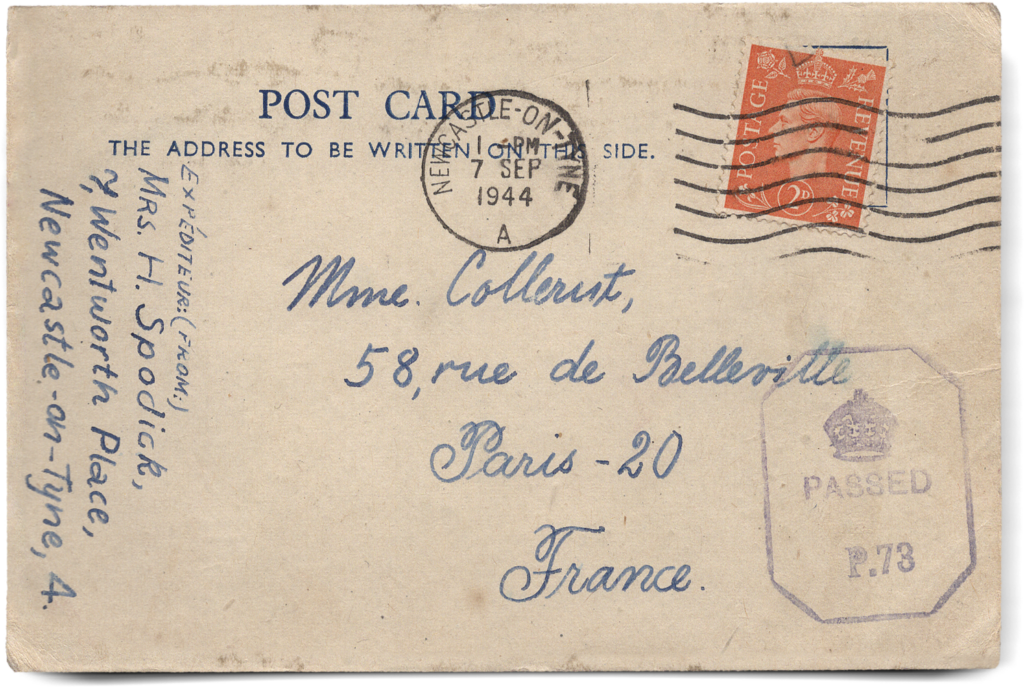 POST CARD
THE ADDRESS TO BE WRITTEN ON THIS SIDE.
NEWCASTLE-ON-TYNE
1 - PM
7 SEP
1944
A
POSTAGE
REVENUE
2D
Mme. Collerist,
58, rue de Belleville
Paris - 20
France.
PASSED
P.73
EXPÉDITEUR: (FROM:)
Mrs. H. Spodick,
Wentworth Place,
Newcastle-on-Tyne, 4.